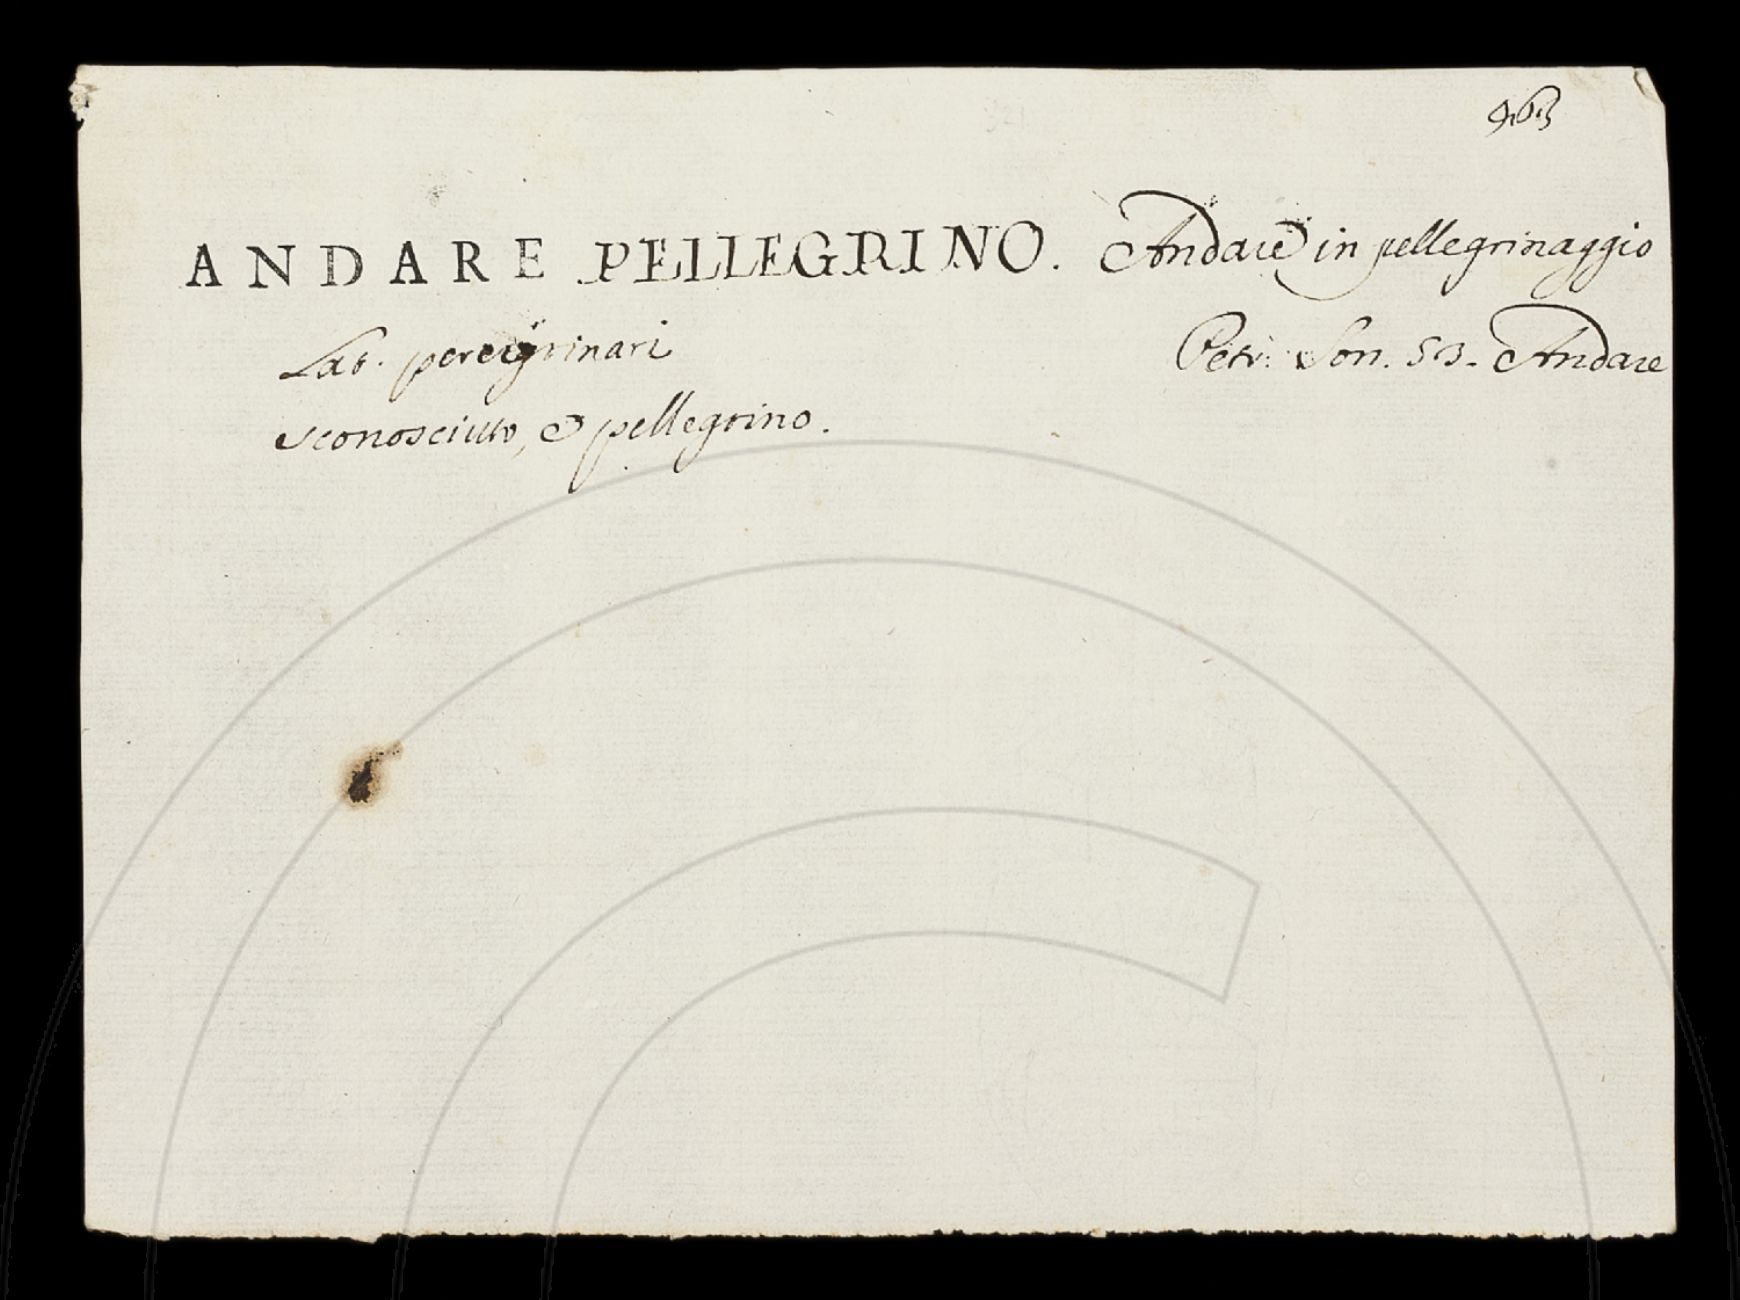 963
ANDARE PELLEGRINO. Andare in pellegrinaggio
Lat. peregrinari Petr: Son. 53. Andare
sconosciuto, e pellegrino.